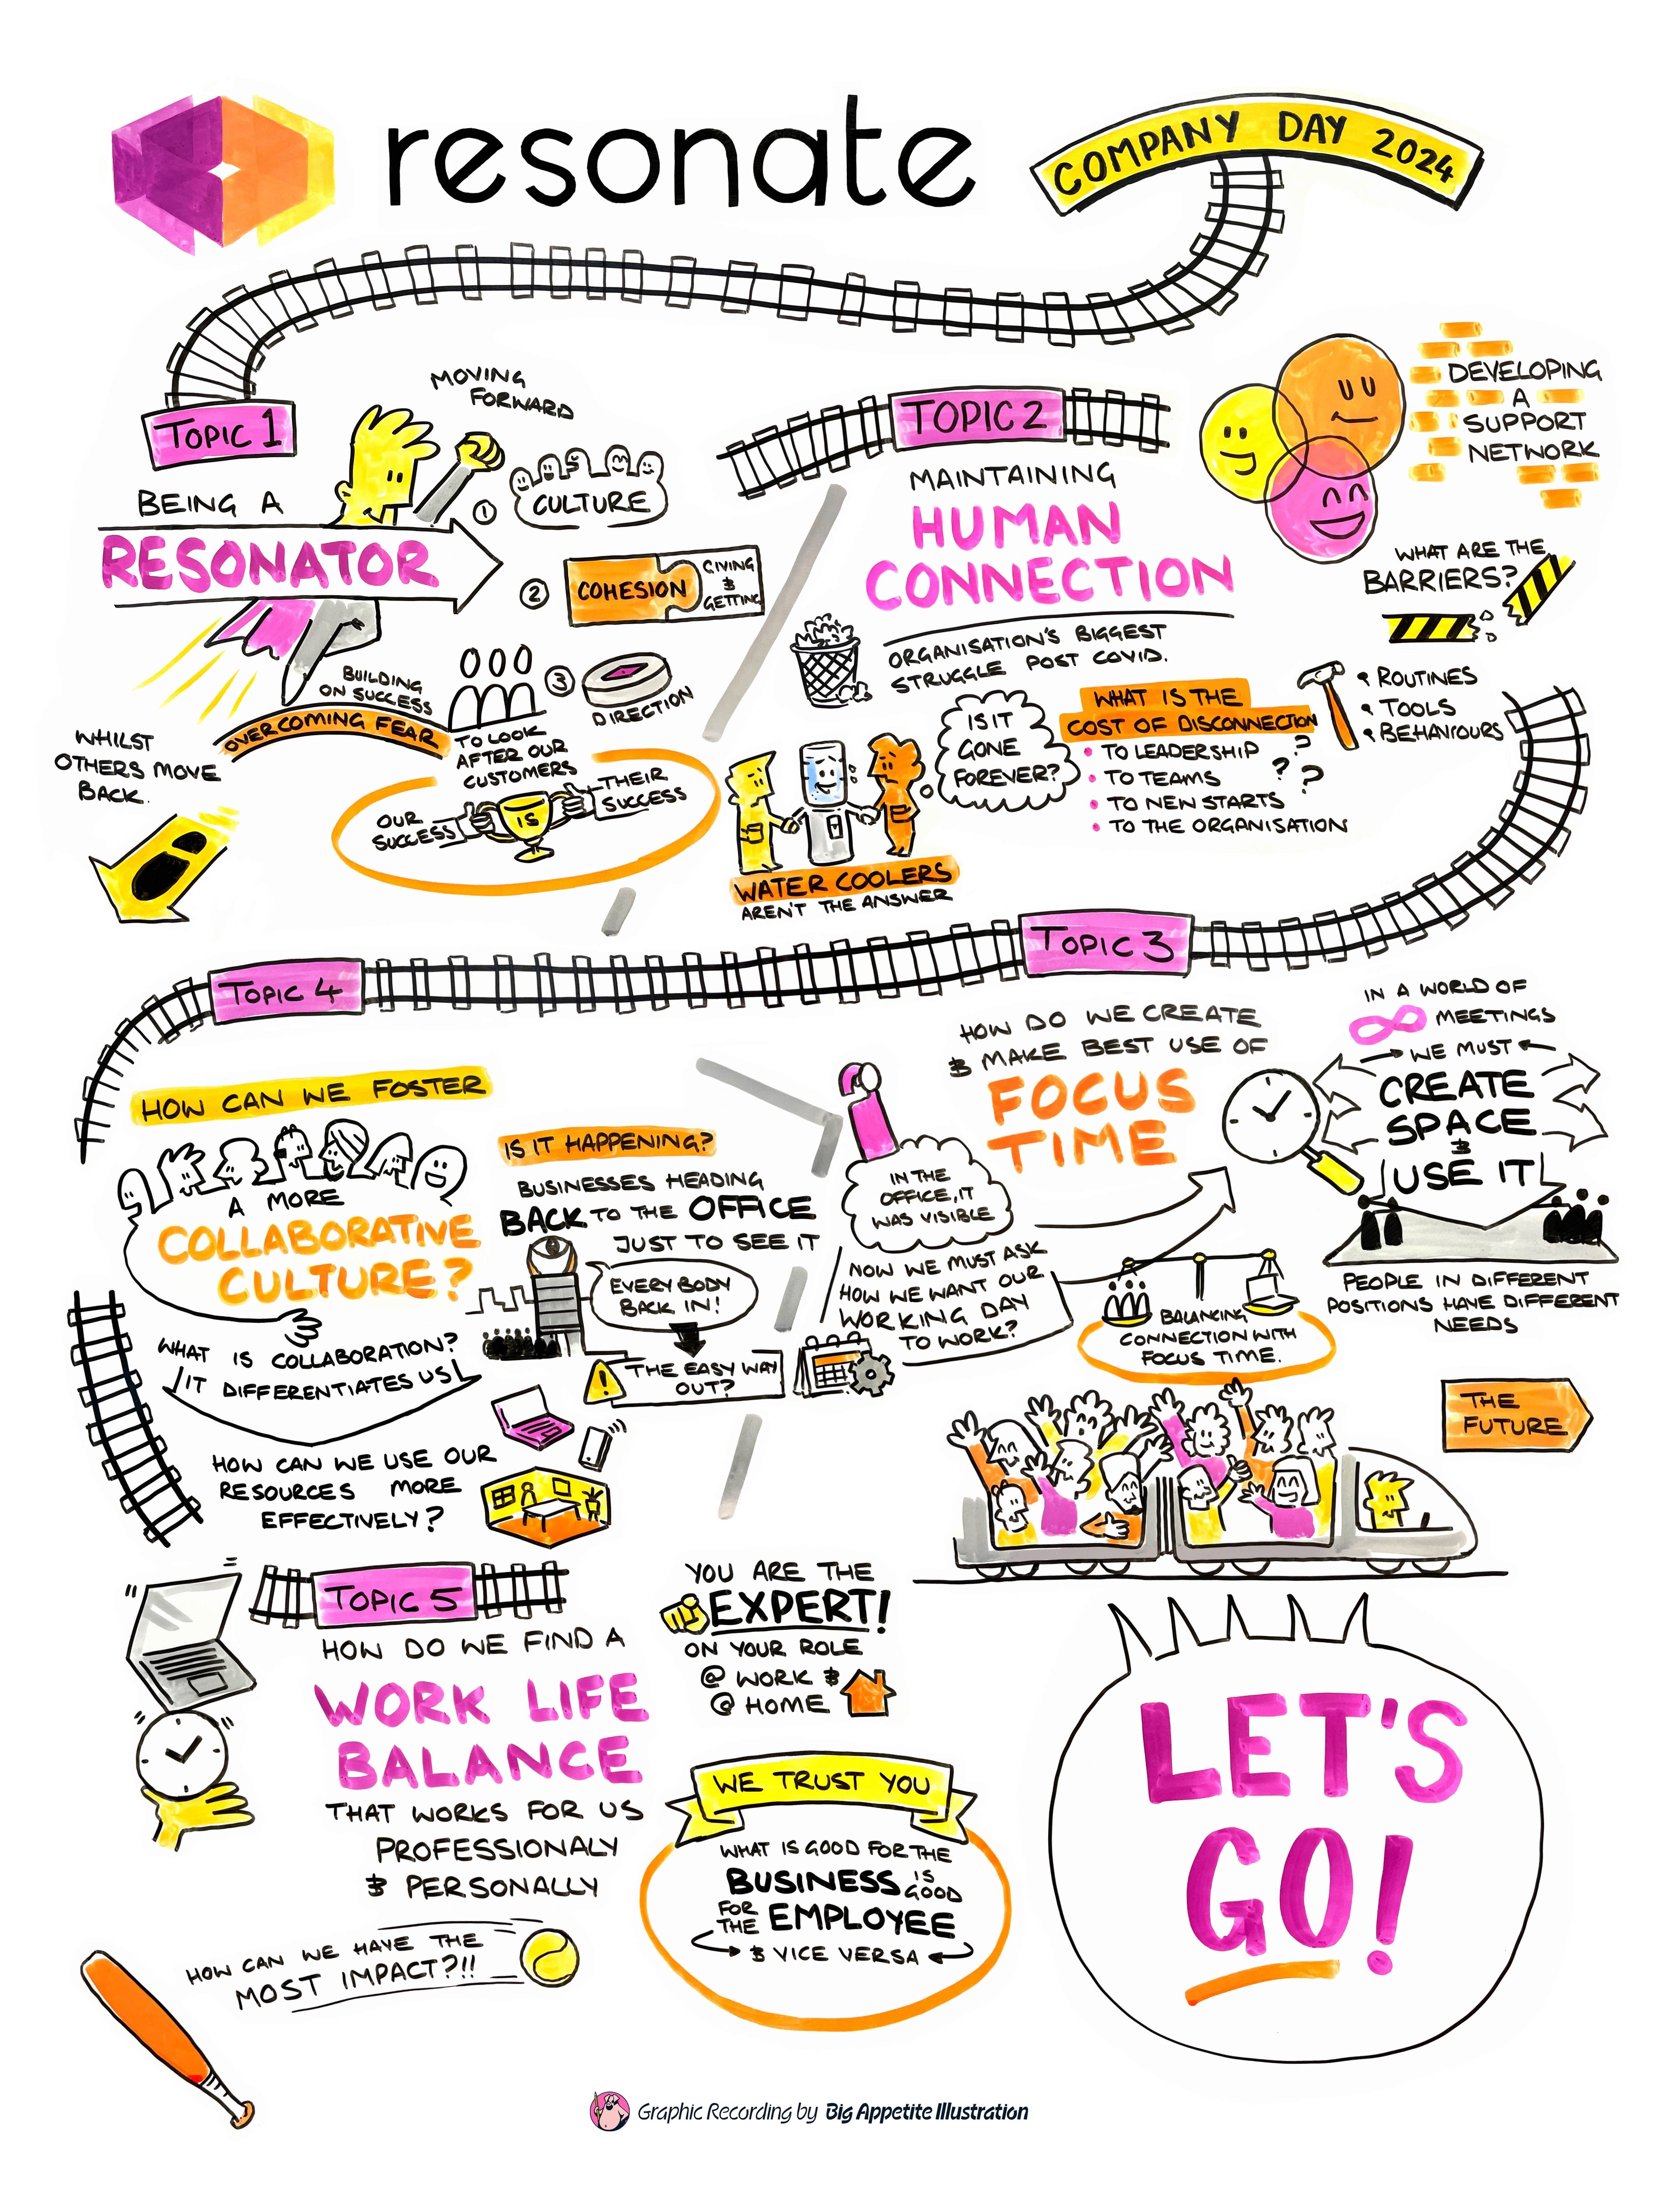 resonate
COMPANY DAY 2024
TOPIC 1
BEING A
RESONATOR
MOVING
FORWARD
1
CULTURE
2
COHESION
GIVING
&
GETTING
3
DIRECTION
BUILDING
ON SUCCESS
OVERCOMING FEAR
WHILST
OTHERS MOVE
BACK.
TO LOOK
AFTER OUR
CUSTOMERS
OUR
SUCCESS
IS
THEIR
SUCCESS
TOPIC 2
MAINTAINING
HUMAN
CONNECTION
ORGANISATION'S BIGGEST
STRUGGLE POST COVID.
DEVELOPING
A
SUPPORT
NETWORK
WHAT ARE THE
BARRIERS?
ROUTINES
TOOLS
BEHAVIOURS
IS IT
GONE
FOREVER?
WHAT IS THE
COST OF DISCONNECTION
• TO LEADERSHIP ?
• TO TEAMS ? ?
• TO NEW STARTS
• TO THE ORGANISATION
WATER COOLERS
AREN'T THE ANSWER
TOPIC 3
HOW DO WE CREATE
& MAKE BEST USE OF
FOCUS
TIME
IN A WORLD OF
∞ MEETINGS
WE MUST
CREATE
SPACE
&
USE IT
PEOPLE IN DIFFERENT
POSITIONS HAVE DIFFERENT
NEEDS
IN THE
OFFICE, IT
WAS VISIBLE
NOW WE MUST ASK
HOW WE WANT OUR
WORKING DAY
TO WORK?
BALANCING
CONNECTION WITH
FOCUS TIME.
TOPIC 4
HOW CAN WE FOSTER
A MORE
COLLABORATIVE
CULTURE?
IS IT HAPPENING?
BUSINESSES HEADING
BACK TO THE OFFICE
JUST TO SEE IT
EVERYBODY
BACK IN!
!
THE EASY WAY
OUT?
WHAT IS COLLABORATION?
IT DIFFERENTIATES US
HOW CAN WE USE OUR
RESOURCES MORE
EFFECTIVELY?
THE
FUTURE
TOPIC 5
HOW DO WE FIND A
WORK LIFE
BALANCE
THAT WORKS FOR US
PROFESSIONALY
& PERSONALLY
HOW CAN WE HAVE THE
MOST IMPACT?!!
YOU ARE THE
EXPERT!
ON YOUR ROLE
@ WORK &
@ HOME
WE TRUST YOU
WHAT IS GOOD FOR THE
BUSINESS IS
GOOD
FOR
THE EMPLOYEE
& VICE VERSA
LET'S
GO!
Graphic Recording by Big Appetite Illustration